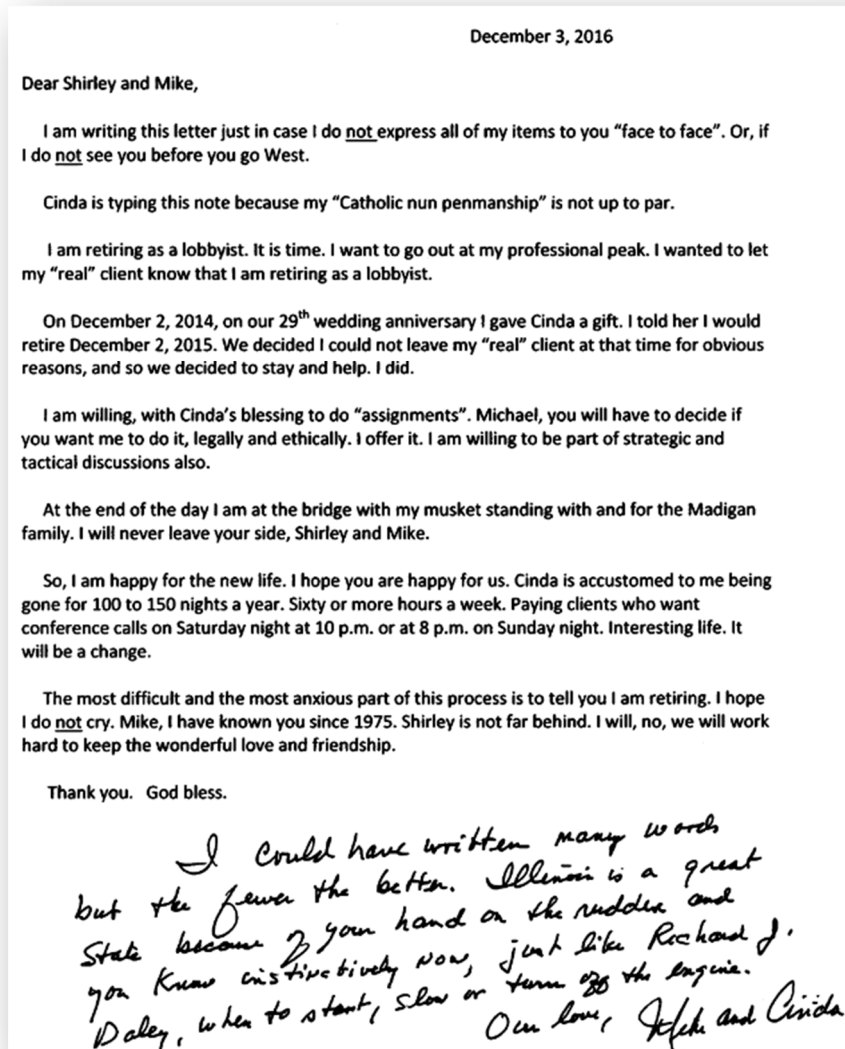 December 3, 2016
Dear Shirley and Mike,
I am writing this letter just in case I do not express all of my items to you “face to face”. Or, if
I do not see you before you go West.
Cinda is typing this note because my “Catholic nun penmanship” is not up to par.
I am retiring as a lobbyist. It is time. I want to go out at my professional peak. I wanted to let
my “real” client know that I am retiring as a lobbyist.
On December 2, 2014, on our 29th wedding anniversary I gave Cinda a gift. I told her I would
retire December 2, 2015. We decided I could not leave my “real” client at that time for obvious
reasons, and so we decided to stay and help. I did.
I am willing, with Cinda’s blessing to do “assignments”. Michael, you will have to decide if
you want me to do it, legally and ethically. I offer it. I am willing to be part of strategic and
tactical discussions also.
At the end of the day I am at the bridge with my musket standing with and for the Madigan
family. I will never leave your side, Shirley and Mike.
So, I am happy for the new life. I hope you are happy for us. Cinda is accustomed to me being
gone for 100 to 150 nights a year. Sixty or more hours a week. Paying clients who want
conference calls on Saturday night at 10 p.m. or at 8 p.m. on Sunday night. Interesting life. It
will be a change.
The most difficult and the most anxious part of this process is to tell you I am retiring. I hope
I do not cry. Mike, I have known you since 1975. Shirley is not far behind. I will, no, we will work
hard to keep the wonderful love and friendship.
Thank you. God bless.
I could have written many words
but the fewer the better. Illinois is a great
State because of your hand on the rudder and
you know instinctively now, just like Richard J.
Daley, when to start, slow or turn off the engine.
Our love, and Cinda